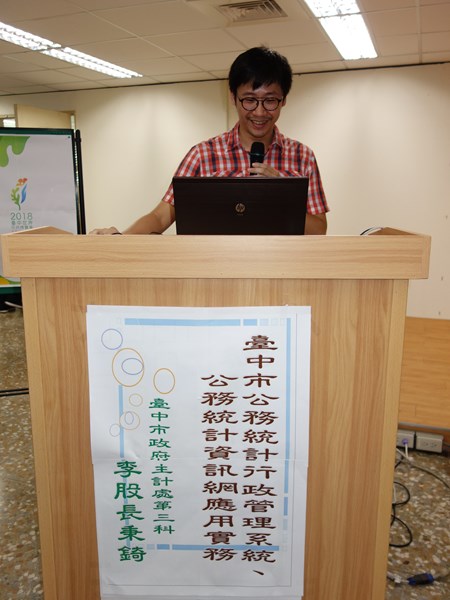 臺中市公務統計行政管理系統、
公務統計資訊網應用實務
臺中市政府主計處第三科
李股長秉錡
2018
hp